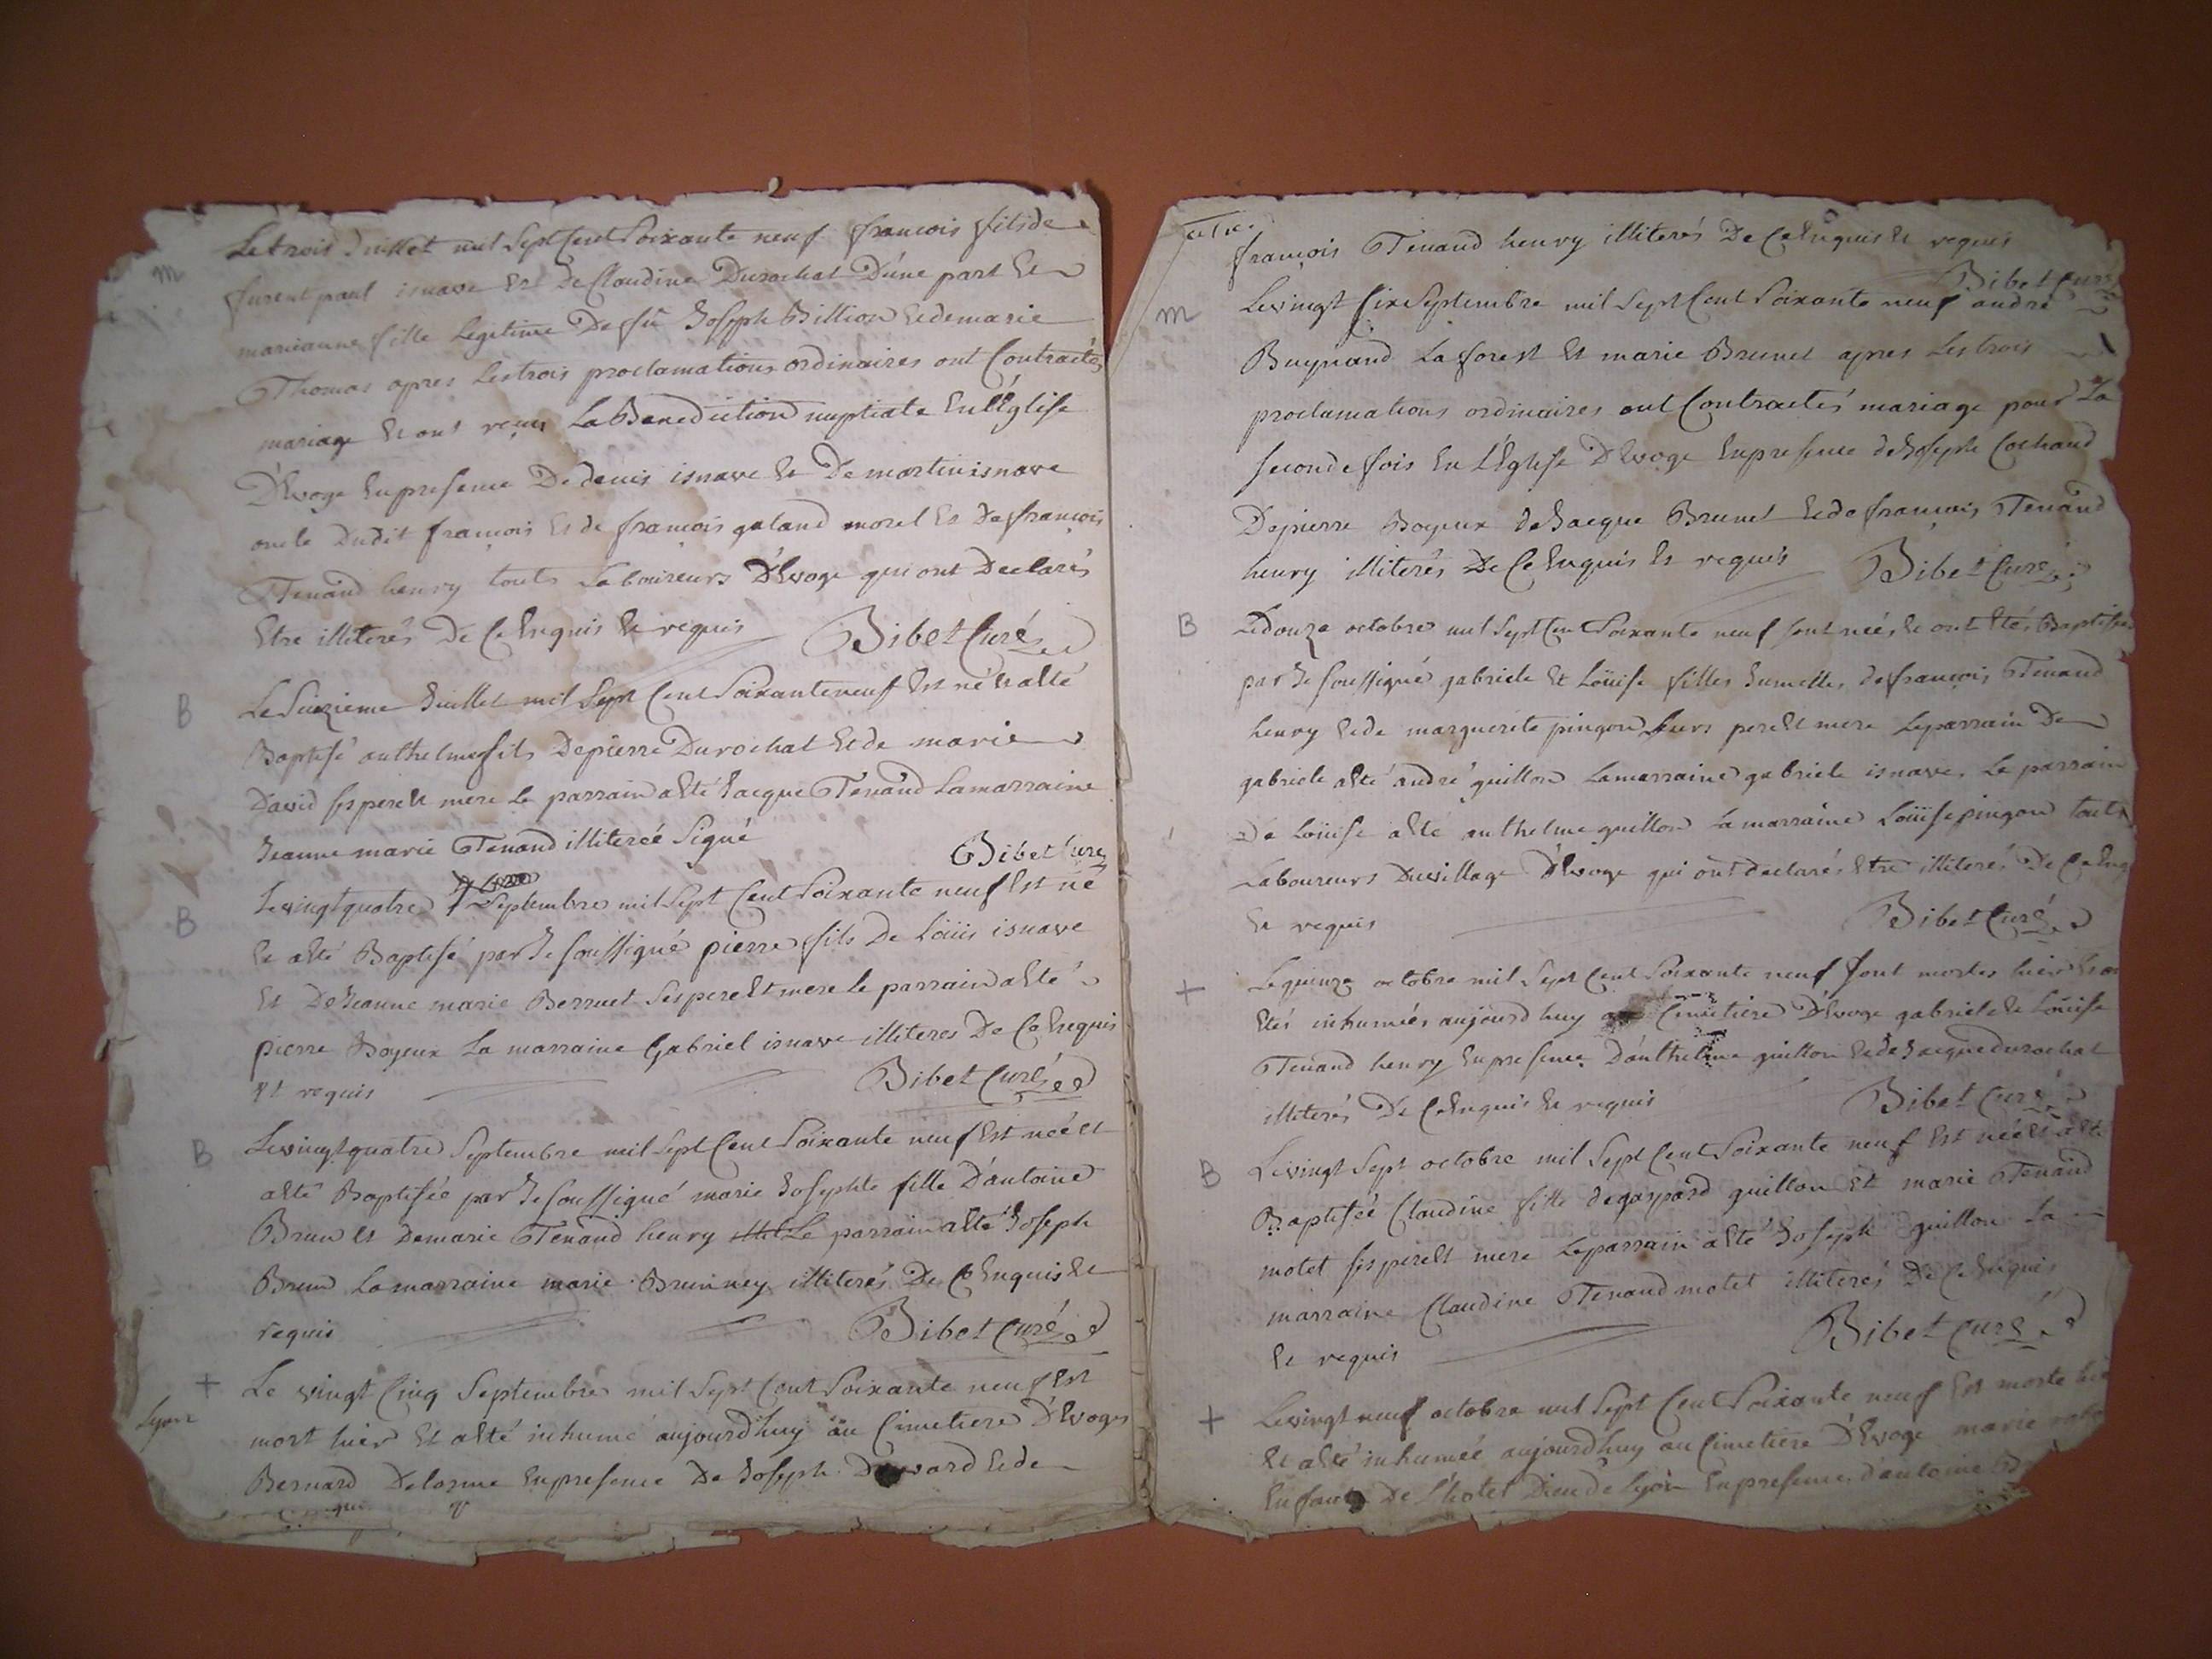 Le trois Juillet mil Sept Cent Soixante neuf francois fils de
m
furent paul isnave Et de Claudine Durochat D'une part Et
marianne fille Legitime De fû Joseph Billion Et de marie
Thomas apres Les trois proclamations ordinaires ont Contractés
mariage Et ont reçus La Benediction nuptiale En L'Eglise
D'Evoge En presence De denis isnave Et De martin isnave
oncle Dudit francois Et de francois galand morel Et De francois
Tenand henry touts Laboureurs D'Evoge qui ont Declarés
Etre illiterés De Ce Enquis Et requis Bibet Curé
B
Le Suizieme Juillet mil Sept Cent Soixante neuf Est né Et a Eté
Baptisé anthelme fils De pierre Durochat Et de marie
David ses pere Et mere Le parrain a Eté Jacque Tenand La marraine
Jeanne marie Tenand illiterée Signé Bibet Curé
B
Le vingt quatre Septembre mil Sept Cent Soixante neuf Est né
Et a Eté Baptisé par Je soussigné pierre fils De Loüis isnave
Et De Jeanne marie Berruet Ses pere Et mere le parrain a Eté
pierre Boyeux La marraine Gabriel isnave illiteres De Ce Enquis
Et requis Bibet Curé
B
Le vingt quatre Septembre mil Sept Cent Soixante neuf Est née Et
a Eté Baptisée par Je soussigné marie Josephte fille D'antoine
Brun Et De marie Tenand henry Le parrain a Eté Joseph
Brun La marraine marie Brunney illiterés De Ce Enquis Et
requis Bibet Curé
+
Le vingt Cinq Septembre mil Sept Cent Soixante neuf Est
Lyon
mort hier Et a Eté inhumé aujourd'huy au Cimetiere D'Evoges
Bernard Delorme En presence De Joseph Et de
francois Tenand henry illiterés De Ce Enquis Et requis
Bibet Curé
m
Le vingt Six Septembre mil Sept Cent Soixante neuf andré
Buynand La forest Et marie Brunet apres Les trois
proclamations ordinaires ont Contractés mariage pour La
seconde fois En L'Eglise D'Evoge En presence de Joseph Cochand
De pierre Boyeux de Jacque Brunet Et de francois Tenand
henry illiterés De Ce Enquis Et requis Bibet Curé
B
Le douze octobre mil Sept Cent Soixante neuf sont nées Et ont Etés Baptisées
par Je soussigné gabriele Et Loüise filles Jumelles de francois Tenand
henry Et de marguerite pingon Leurs pere Et mere Le parrain De
gabriele a Eté andré guillon La marraine gabriele isnave, Le parrain
De Loüise a Eté anthelme guillon La marraine Loüise pingon touts
Laboureurs Du village D'Evoge qui ont declarés Etre illiterés De Ce Enq
Et requis Bibet Curé
+
Le quinze octobre mil Sept Cent Soixante neuf sont mortes hier Et on
Etés inhumées aujourd'huy au Cimetiere D'Evoge gabriele Et Loüise
Tenand henry En presence D'anthelme guillon Et de Jacque durochat
illiterés De Ce Enquis Et requis Bibet Curé
B
Le vingt Sept octobre mil Sept Cent Soixante neuf Est née Et a Eté
Baptisée Claudine fille de gaspard guillon Et marie Tenand
motet ses pere Et mere Le parrain a Eté Joseph guillon La
marraine Claudine Tenand motet illiterés De Ce Enquis
Et requis Bibet Curé
+
Le vingt neuf octobre mil Sept Cent Soixante neuf Est morte hie
Et a Eté inhumée aujourd'huy au Cimetiere D'Evoge marie
Enfant De L'hotel Dieu de Lyon En presence d'antoine